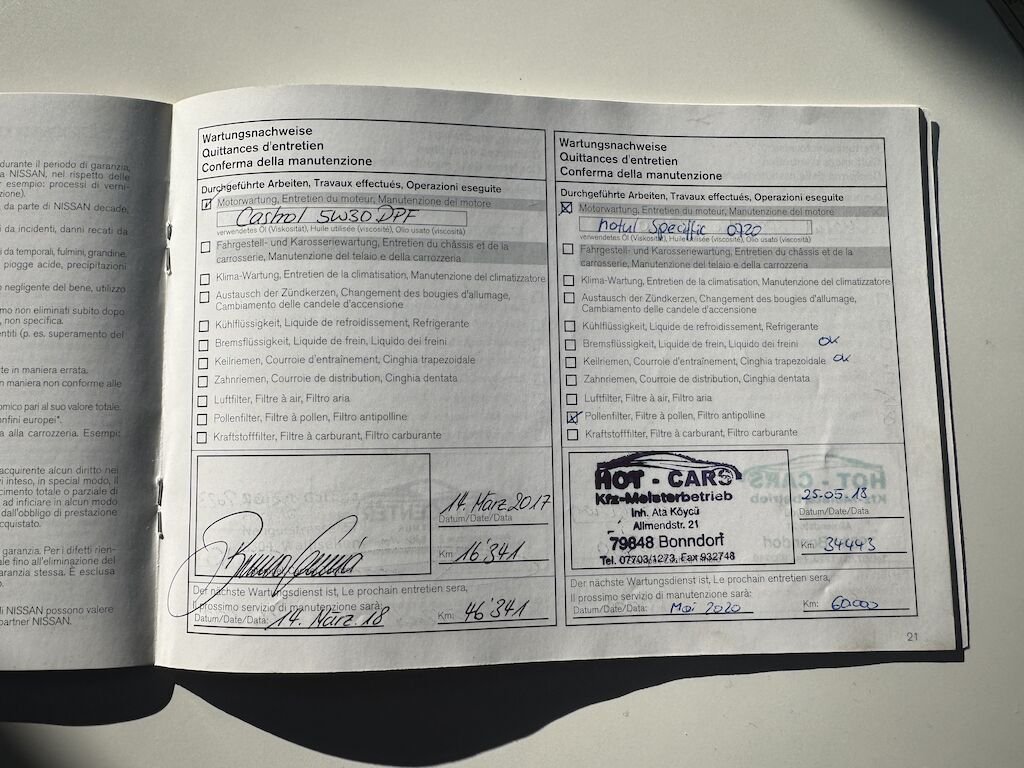 durante il periodo di garanzia,
a NISSAN, nel rispetto delle
esempio: processi di verni-
zione).
da parte di NISSAN decade,
da incidenti, danni recati da
da temporali, fulmini, grandine,
piogge acide, precipitazioni
negligente del bene, utilizzo
mo non eliminati subito dopo
, non specifica.
entiti (p. es. superamento del
te in maniera errata.
n maniera non conforme alle
omico pari al suo valore totale.
onfini europei*.
a alla carrozzeria. Esempi:
acquirente alcun diritto nei
vi inteso, in special modo, il
cimento totale o parziale di
ad inficiare in alcun modo
dall'obbligo di prestazione
cquistato.
garanzia. Per i difetti rien-
ale fino all'eliminazione del
ranzia stessa. È esclusa
o.
li NISSAN possono valere
partner NISSAN.
Wartungsnachweise
Quittances d'entretien
Conferma della manutenzione
Durchgeführte Arbeiten, Travaux effectués, Operazioni eseguite
Motorwartung, Entretien du moteur, Manutenzione del motore
Castrol 5W30 DPF
verwendetes Öl (Viskosität), Huile utilisée (viscosité), Olio usato (viscosità)
Fahrgestell- und Karosseriewartung, Entretien du châssis et de la
carrosserie, Manutenzione del telaio e della carrozzeria
Klima-Wartung, Entretien de la climatisation, Manutenzione del climatizzatore
Austausch der Zündkerzen, Changement des bougies d'allumage,
Cambiamento delle candele d'accensione
Kühlflüssigkeit, Liquide de refroidissement, Refrigerante
Bremsflüssigkeit, Liquide de frein, Liquido dei freini
Keilriemen, Courroie d'entraînement, Cinghia trapezoidale
Zahnriemen, Courroie de distribution, Cinghia dentata
Luftfilter, Filtre à air, Filtro aria
Pollenfilter, Filtre à pollen, Filtro antipolline
Kraftstofffilter, Filtre à carburant, Filtro carburante
14. März 2017
Datum/Date/Data
Km: 16'341
Der nächste Wartungsdienst ist, Le prochain entretien sera,
Il prossimo servizio di manutenzione sarà:
Datum/Date/Data: 14. März. 18 Km: 46'341
Wartungsnachweise
Quittances d'entretien
Conferma della manutenzione
Durchgeführte Arbeiten, Travaux effectués, Operazioni eseguite
Motorwartung, Entretien du moteur, Manutenzione del motore
Motul Speciffic 0720
verwendetes Öl (Viskosität), Huile utilisée (viscosité), Olio usato (viscosità)
Fahrgestell- und Karosseriewartung, Entretien du châssis et de la
carrosserie, Manutenzione del telaio e della carrozzeria
Klima-Wartung, Entretien de la climatisation, Manutenzione del climatizzatore
Austausch der Zündkerzen, Changement des bougies d'allumage,
Cambiamento delle candele d'accensione
Kühlflüssigkeit, Liquide de refroidissement, Refrigerante
Bremsflüssigkeit, Liquide de frein, Liquido dei freini ok
Keilriemen, Courroie d'entraînement, Cinghia trapezoidale ok
Zahnriemen, Courroie de distribution, Cinghia dentata
Luftfilter, Filtre à air, Filtro aria
Pollenfilter, Filtre à pollen, Filtro antipolline
Kraftstofffilter, Filtre à carburant, Filtro carburante
HOT - CARS
Kfz-Meisterbetrieb
Inh. Ata Köycü
Allmendstr. 21
79848 Bonndorf
Tel. 07703/1273, Fax 932748
25.05.18
Datum/Date/Data
Km: 34443
Der nächste Wartungsdienst ist, Le prochain entretien sera,
Il prossimo servizio di manutenzione sarà:
Datum/Date/Data: Mai 2020 Km: 60000
21